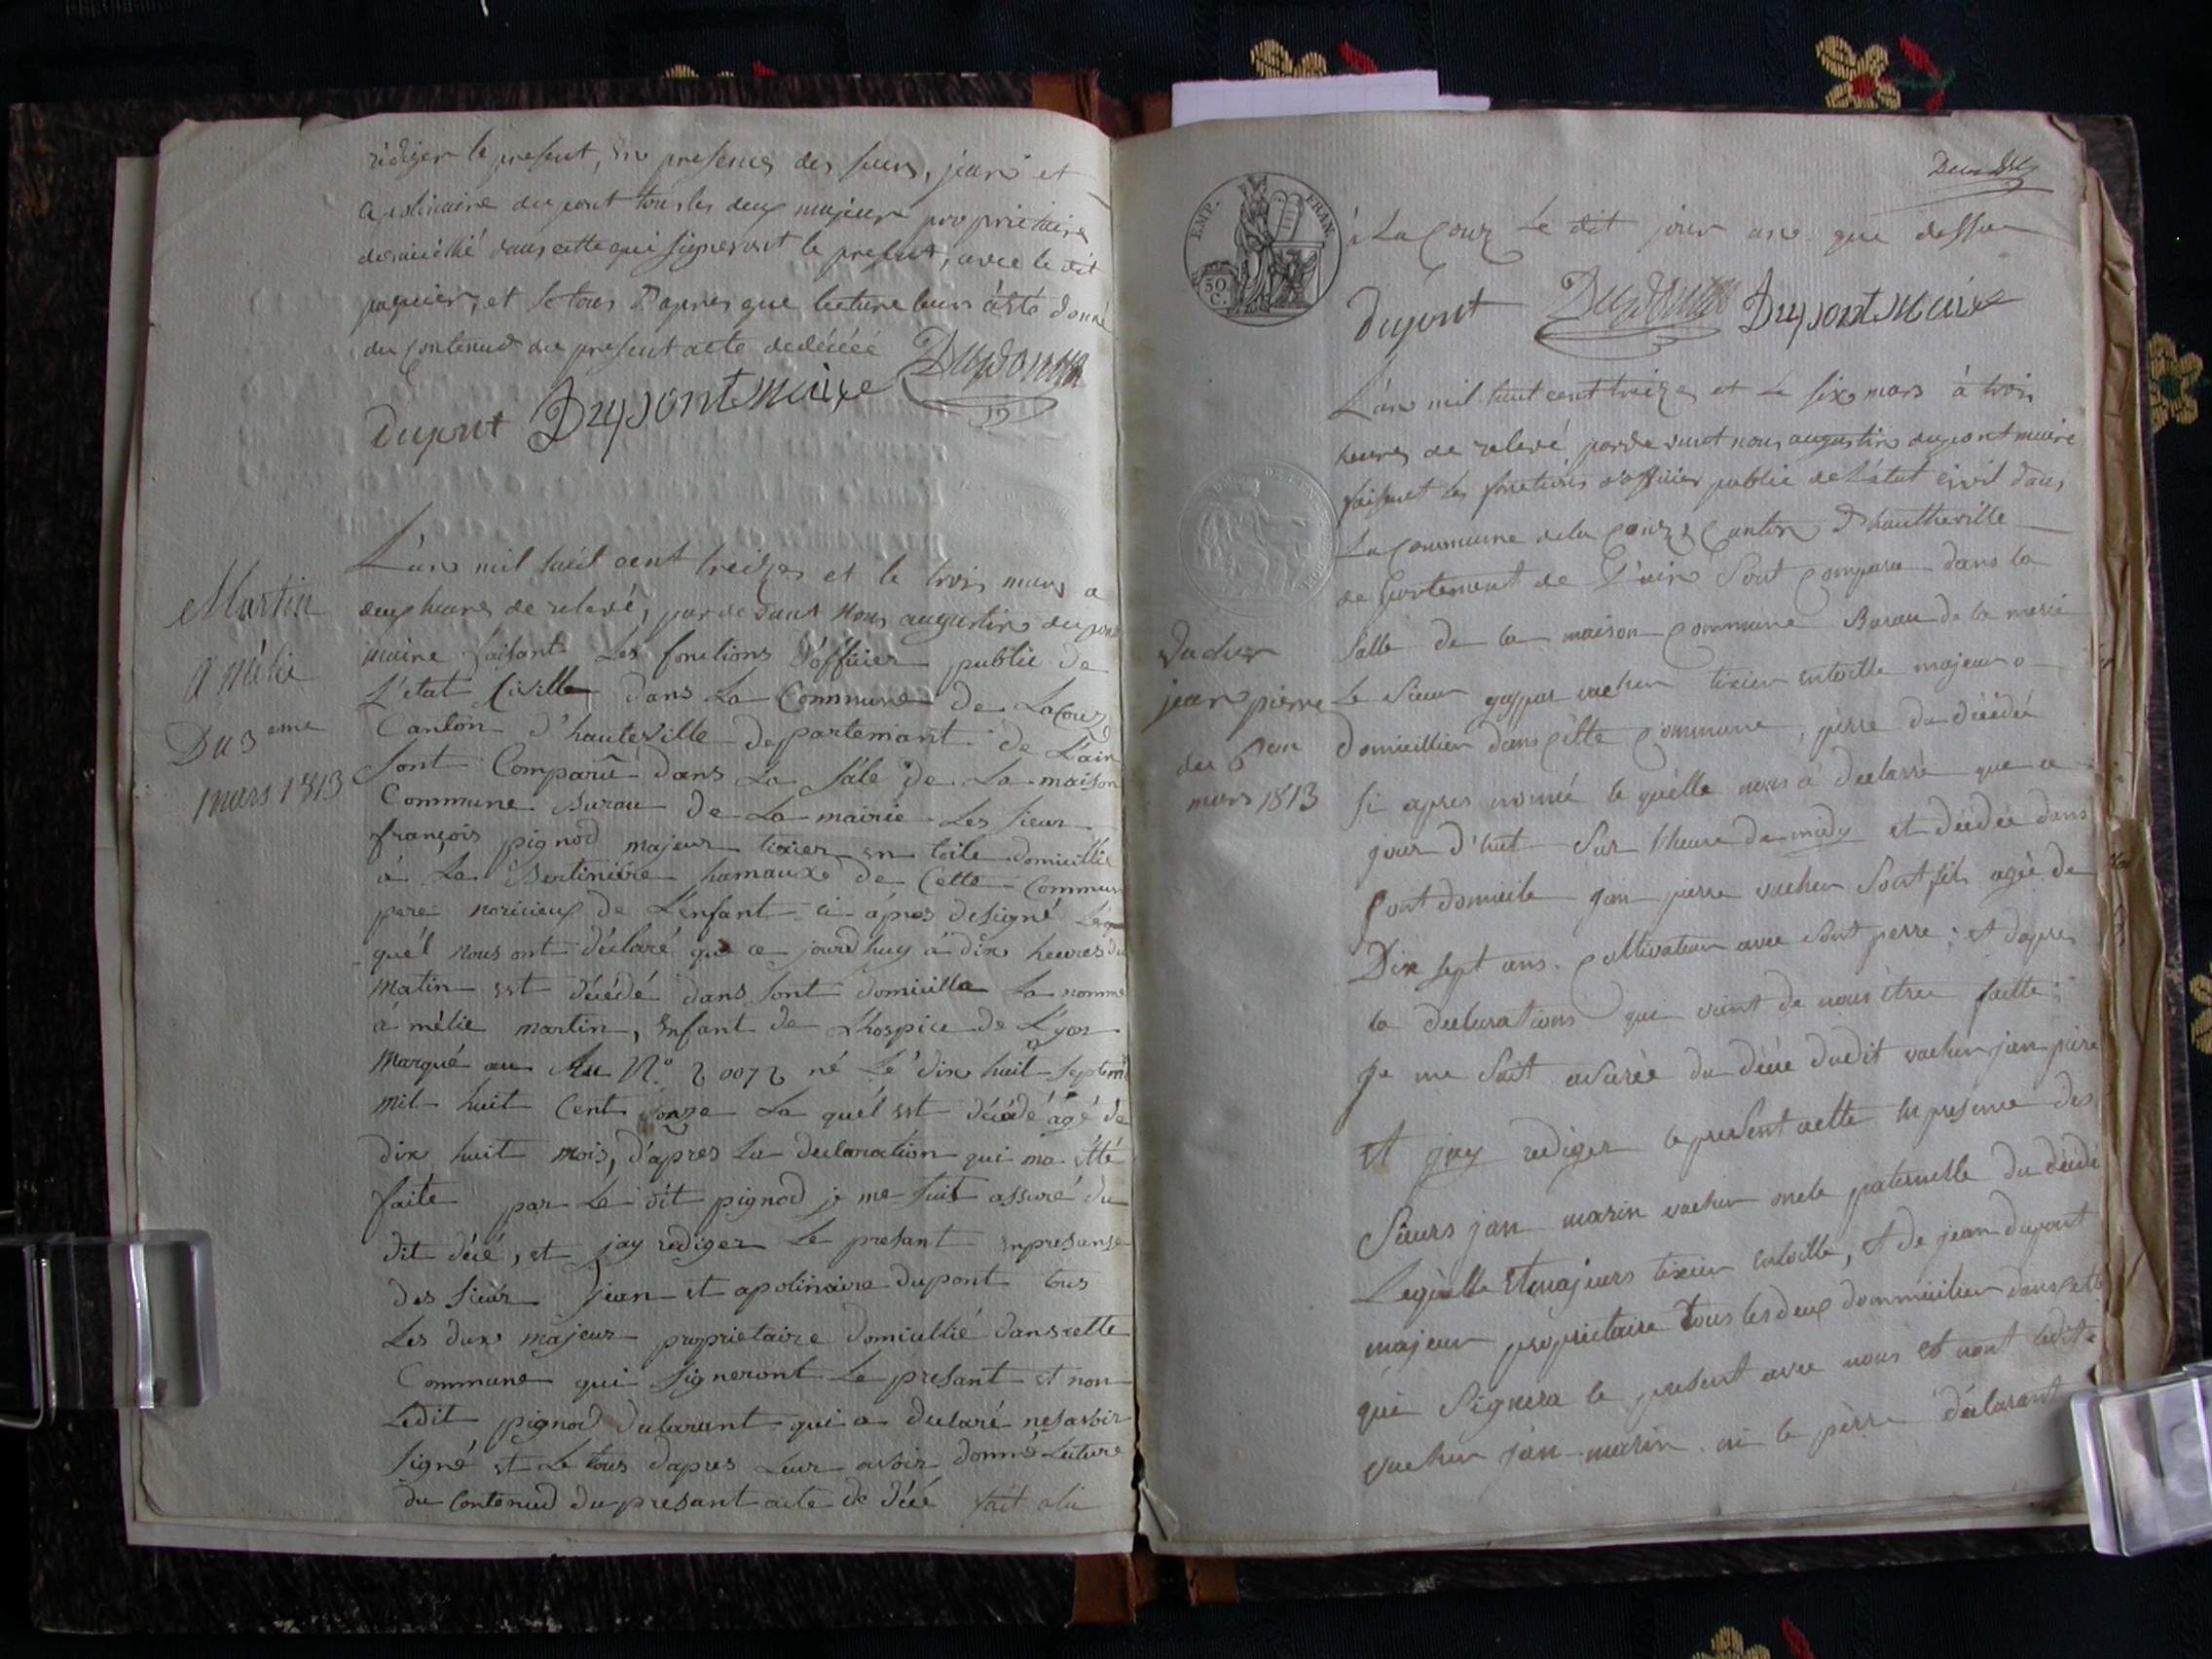 rédiger le present, en presences des sieurs, jean et
apolinaire dupont tous les deux majeur propriétaires
domicilié dans cette qui signeront le present, avec le dit
et le tous d'apres que lecture leurs à été donné
du contenud du present acte de décéé
dupont Dupont Maire Dupont
L'an mil huit cent treizes et le trois mars a
deux heures de relevé, par devant nous augustin dupont
maire faisant Les fonctions d'officier public de
L'etat Civille dans La Commune de LaCoux
Canton d'hauteville departemant de L'ain
Sont Comparû dans La Sale de La maison
Commune Burau de La mairie Les sieur
françois pignod majeur tixier en toile domicillié
à La Bertinière hamaux de Cette Commune
pere noricieux de L'enfant ci-apres designé Le
quél nous ont déclaré que ce jourdhuy à dix heures du
matin est décédé dans sont domicille La nommé
a mélie martin, Enfant de L'hospice de Lyon
marqué au N.° 2 0072 né Le dix huit septem
mil huit Cent onze La quél est décédé âgé de
dix huit mois, d'apres La declaration qui ma été
faite par Le dit pignod je me suit assuré du
dit décé, et jay rediger Le presant en presanse
des sieur Jean et apolinaire dupont tous
Les dux majeur proprietaire domicillié dans cette
Commune qui signeront Le presant et non
Ledit pignod declarant qui a declaré ne savoir
signé et Le tous d'apres Leur avoir donné Lecture
du Contenud du présant acte de décé fait a la
Martin
a mélie
Du 3eme
mars 1813
EMP. FRAN.
50 C.
à La Coux Le dit jour an que dessus
dupont Dupont Dupont Maire
L'an mil huit cent treizes et le six mars à trois
heures de relevé pardevant nous augustin dupont maire
faisant les fonctions d'officier public de L'état civil dans
La Commune de la Coux Canton D'hautheville
departement de L'ain Sont Comparu dans la
Salle de la maison Commune Burau de la merie
Le Sieur gaspar vacher tixier entoille majeur
domicillier dans cette Commune, pèrre du décédé
si apres nomé le quèlle nous à declarré que a
jour d'hui Sur l'heure de midy et décédée dans
sont domicile jan pierre vacher Sont fils agée de
Dix sept ans. Cultivateur avec Sont perre; et dapres
la declarations que vient de nous être faitte;
je me Suit asurée du décé dudit vacher jan piere
et jay rediger le present actte en presence des
Sieurs jan marin vacher oncle paternelle du décédé
Legùelle Et majeurs tixier entoille, et de jean dupont
majeur proprietaire tous les deux dommicilier dans cette
qui Signera le present avec nous et nont ledit
vacher jan-marin ni le pèrre déclarant
vacher
jean pierre
du 6em
mars 1813